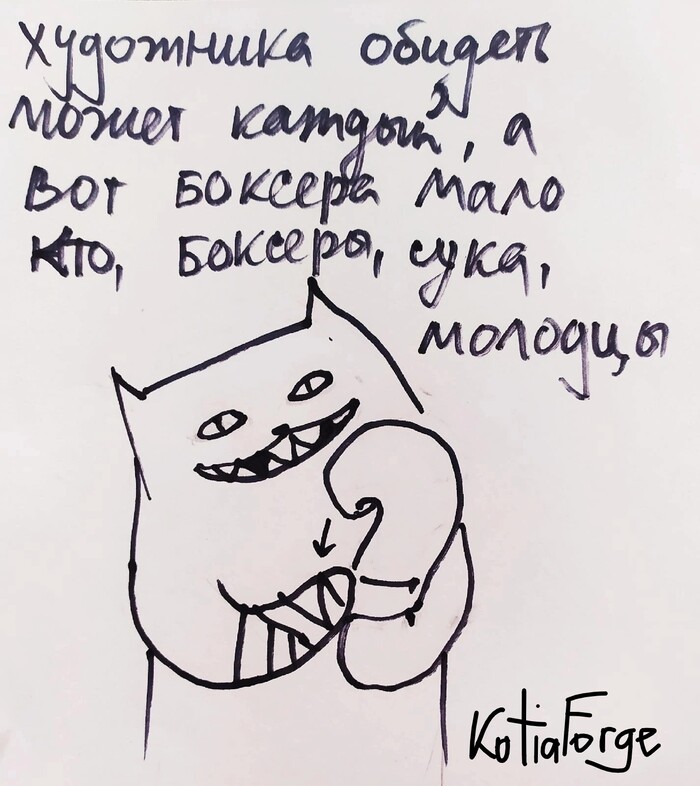 Художника обидеть
может каждый, а
вот боксера мало
кто, боксеры, сука,
молодцы
KotiaForge